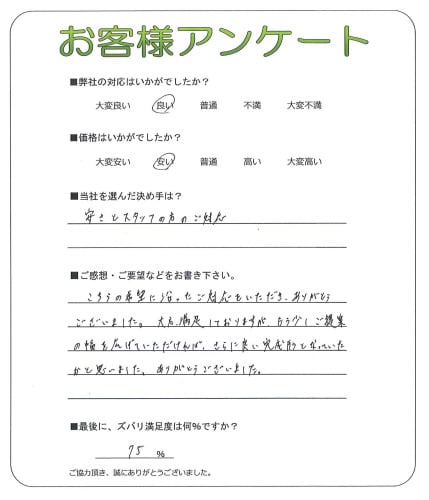 お客様アンケート
■弊社の対応はいかがでしたか？
大変良い 良い 普通 不満 大変不満
■価格はいかがでしたか？
大変安い 安い 普通 高い 大変高い
■当社を選んだ決め手は？
安さとスタッフの方のご対応
■ご感想・ご要望などをお書き下さい。
こちらの希望に沿ったご対応をいただき、ありがとう
ございました。大方満足しておりますが、もう少しご提案
の幅を広げていただければ、さらに良い完成形となっていた
かと思いました。ありがとうございました。
■最後に、ズバリ満足度は何％ですか？
75 ％
ご協力頂き、誠にありがとうございました。